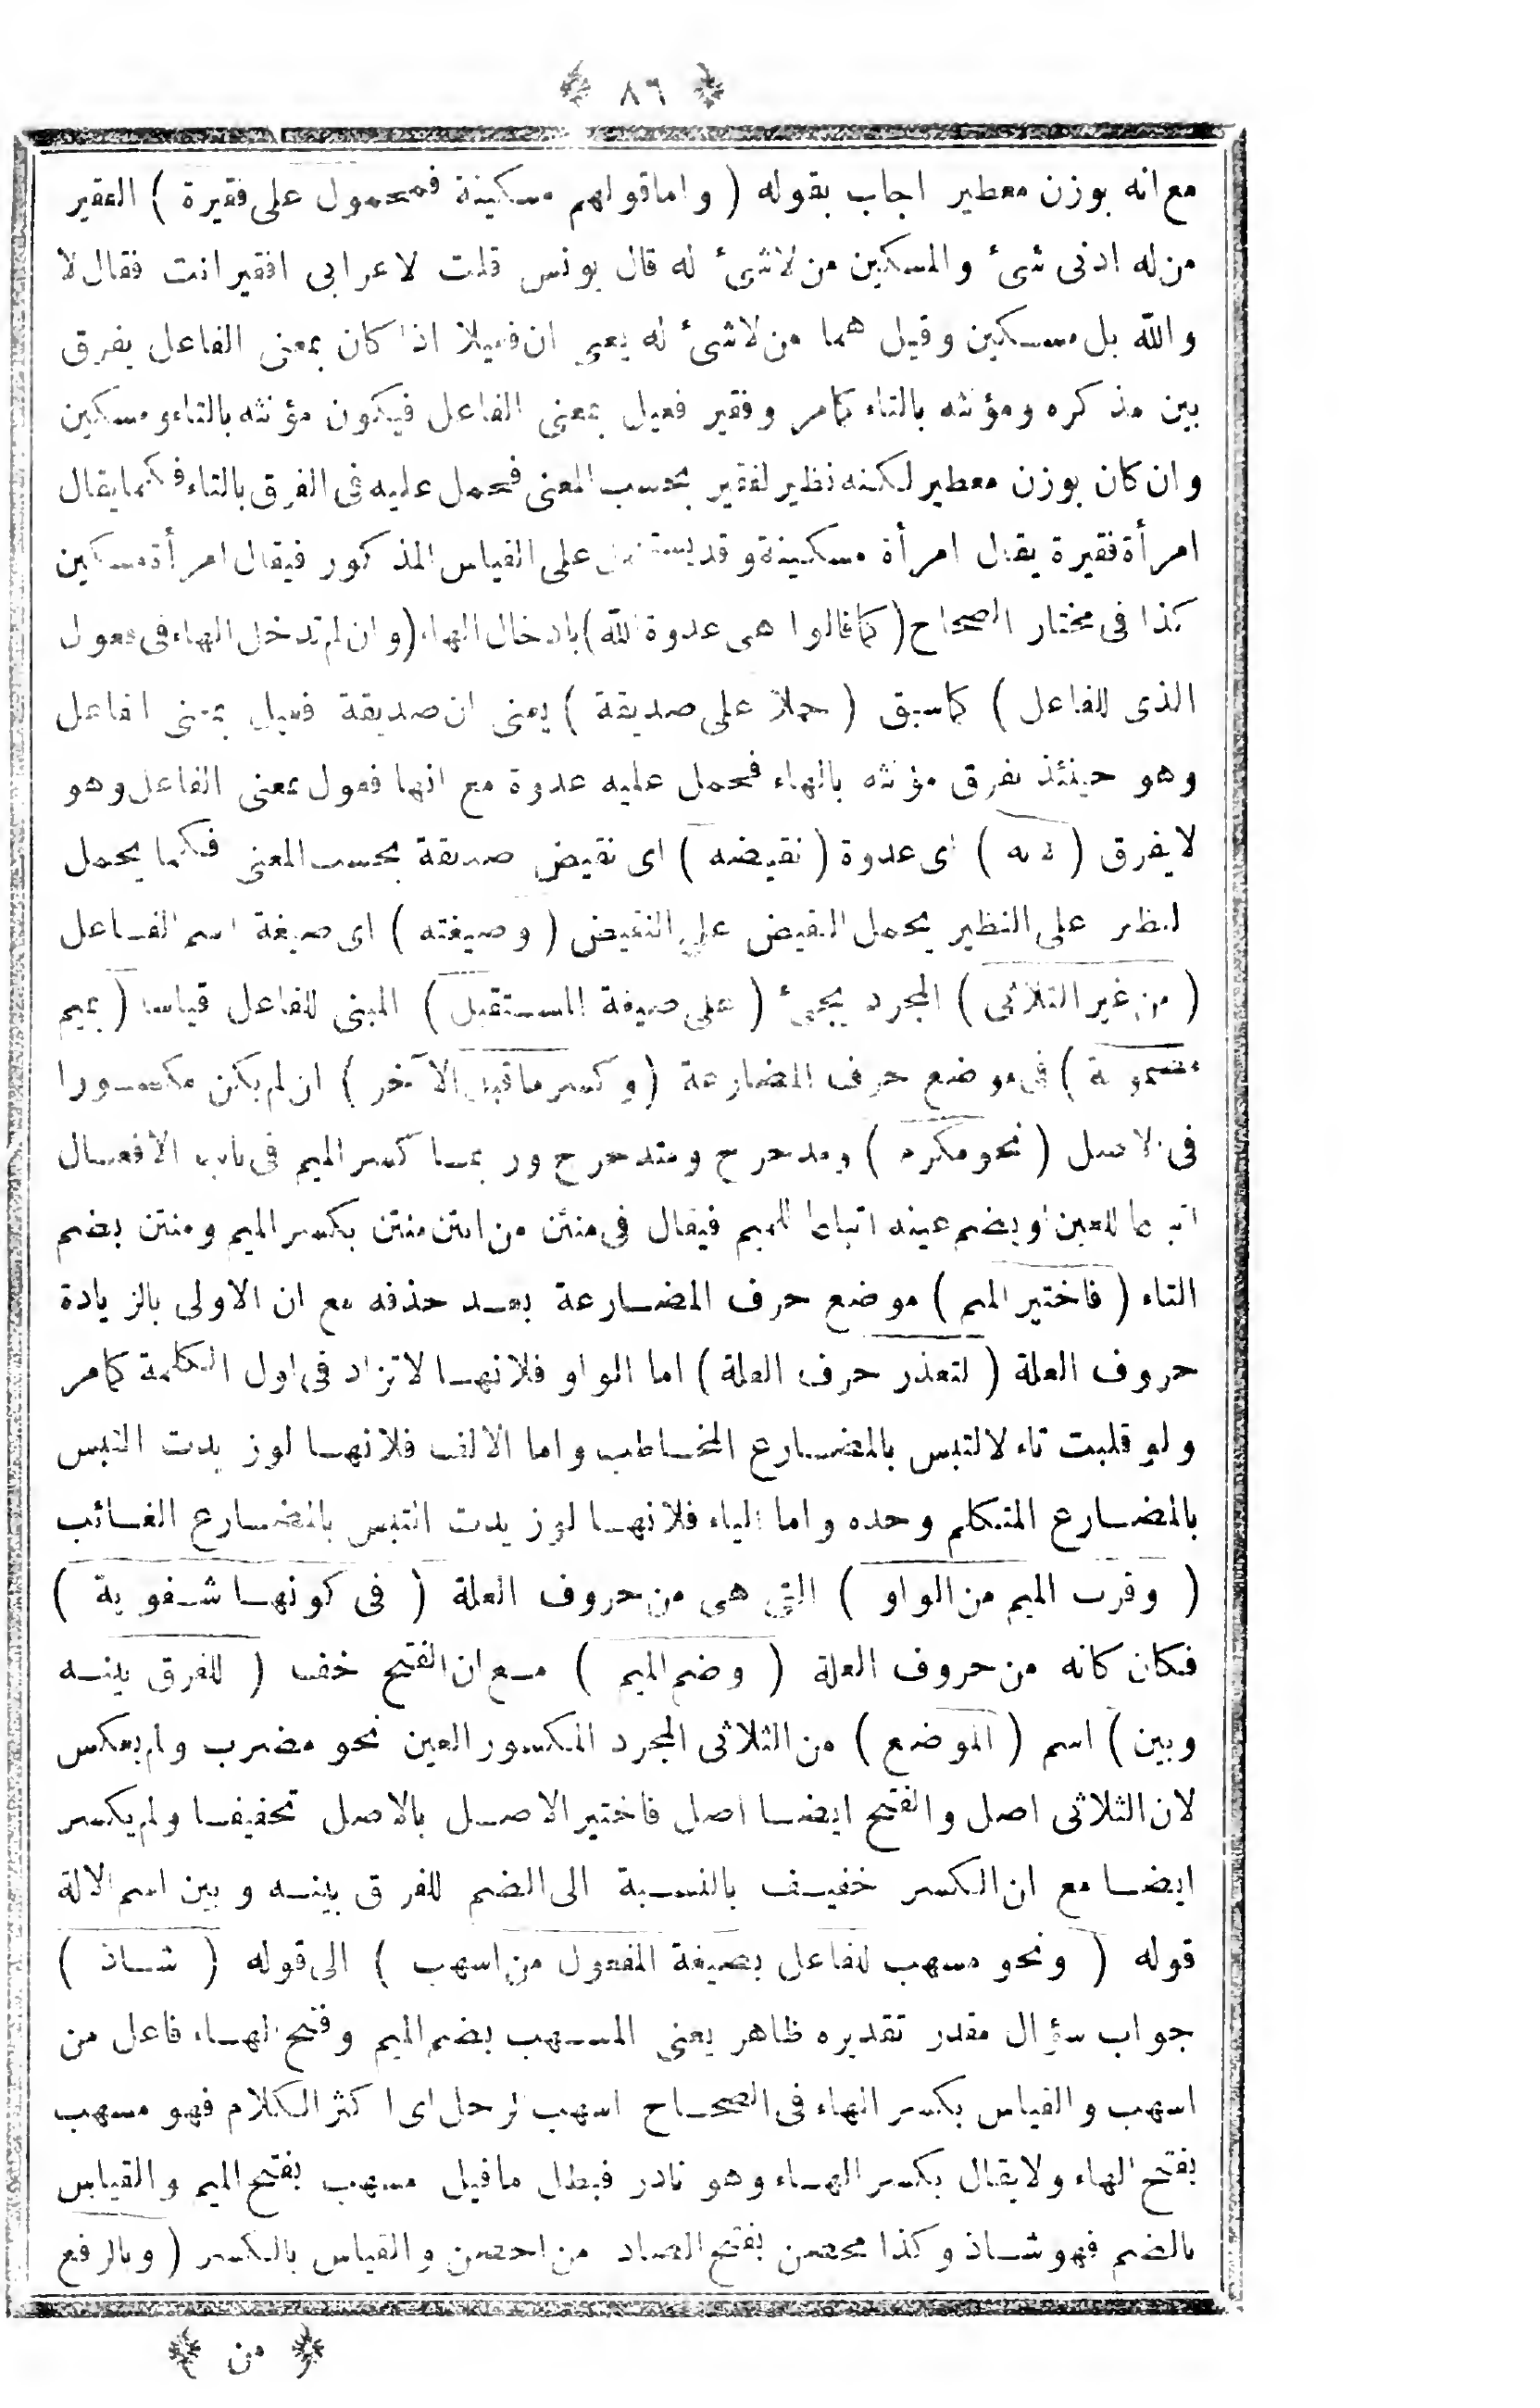 ﴿ ٨٦ ﴾
مع انه بوزن معطير اجاب بقوله ( واما قولهم مسكينة فمحمول على فقيرة ) الفقير
من له ادنى شئ والمسكين من لاشئ له قال يونس قلت لاعرابى افقير انت فقال لا
والله بل مسكين وقيل هما من لاشئ له يعنى ان فعيلا اذا كان بمعنى الفاعل يفرق
بين مذكره ومؤنثه بالتاء كامر وفقير فعيل بمعنى الفاعل فيكون مؤنثه بالتاء ومسكين
وان كان بوزن معطير لكنه نظير لفقير بحسب المعنى فحمل عليه فى الفرق بالتاء فكما يقال
امرأة فقيرة يقال امرأة مسكينة وقد يستعمل على القياس المذكور فيقال امرأة مسكين
كذا فى مختار الصحاح ( كما قالوا هى عدوة الله ) بادخال الهاء ( وان لم تدخل الهاء فى فعول
الذى للفاعل ) كاسبق ( حملا على صديقة ) يعنى ان صديقة فعيل بمعنى الفاعل
وهو حينئذ يفرق مؤنثه بالهاء فحمل عليه عدوة مع انها فعول بمعنى الفاعل وهو
لا يفرق ( لانه ) اى عدوة ( نقيضه ) اى نقيض صديقة بحسب المعنى فكما يحمل
النظير على النظير يحمل النقيض على النقيض ( وصيغته ) اى صيغة اسم الفاعل
( من غير الثلاثى ) المجرد يجئ ( على صيغة المستقبل ) المبنى للفاعل قياسا ( بميم
مضمومة ) فى موضع حرف المضارعة ( وكسر ماقبل الآخر ) ان لم يكن مكسورا
فى الاصل ( نحو مكرم ) ومدحرج ومتدحرج وربما كسر الميم فى باب الافعال
اتباعا للعين او يضم عينه اتباعا للميم فيقال فى منتن من انتن منتن بكسر الميم ومنتن بضم
التاء ( فاختير الميم ) موضع حرف المضارعة بعد حذفه مع ان الاولى بالزيادة
حروف العلة ( لتعذر حرف العلة ) اما الواو فلانها لاتزاد فى اول الكلمة كامر
ولو قلبت تاء لالتبس بالمضارع المخاطب واما الالف فلانها لوزيدت التبس
بالمضارع المتكلم وحده واما الياء فلانها لوزيدت التبس بالمضارع الغائب
( وقرب الميم من الواو ) التى هى من حروف العلة ( فى كونها شفوية )
فكان كانه من حروف العلة ( وضم الميم ) مع ان الفتح خف ( للفرق بينه
وبين ) اسم ( الموضع ) من الثلاثى المجرد المكسور العين نحو مضرب ولم يعكس
لان الثلاثى اصل والفتح ايضا اصل فاختير الاصل بالاصل تخفيفا ولم يكسر
ايضا مع ان الكسر خفيف بالنسبة الى الضم للفرق بينه وبين اسم الالة
قوله ( ونحو مسهب للفاعل بصيغة المفعول من اسهب ) الى قوله ( شاذ )
جواب سؤال مقدر تقديره ظاهر يعنى المسهب بضم الميم وفتح الهاء فاعل من
اسهب والقياس بكسر الهاء فى الصحاح اسهب الرجل اى اكثر الكلام فهو مسهب
بفتح الهاء ولا يقال بكسر الهاء وهو نادر فبطل ماقيل مسهب بفتح الميم والقياس
بالضم فهو شاذ وكذا محصن بفتح الصاد من احصن والقياس بالكسر ( وبالرفع
﴿ من ﴾